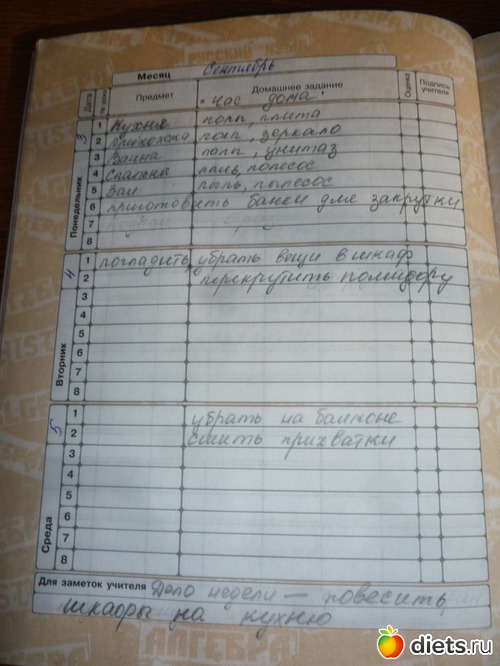 Месяц Сентябрь
Дата № урока Предмет Домашнее задание Оценка Подпись учителя
"Час дома"
3 Понедельник
1 Кухня полы, плита
2 Прихожая полы, зеркало
3 Ванна полы, унитаз
4 Спальня пыль, полесос
5 Зал пыль, пылесос
6 приготовить банки для закрутки
7
8
4 Вторник
1 погладить, убрать вещи в шкаф
2 перекрутить помидору
3
4
5
6
7
8
5 Среда
1 убрать на балконе
2 сшить прихватки
3
4
5
6
7
8
Для заметок учителя Дело недели — повесить
шкафы на кухню
АЛГЕБРА
diets.ru